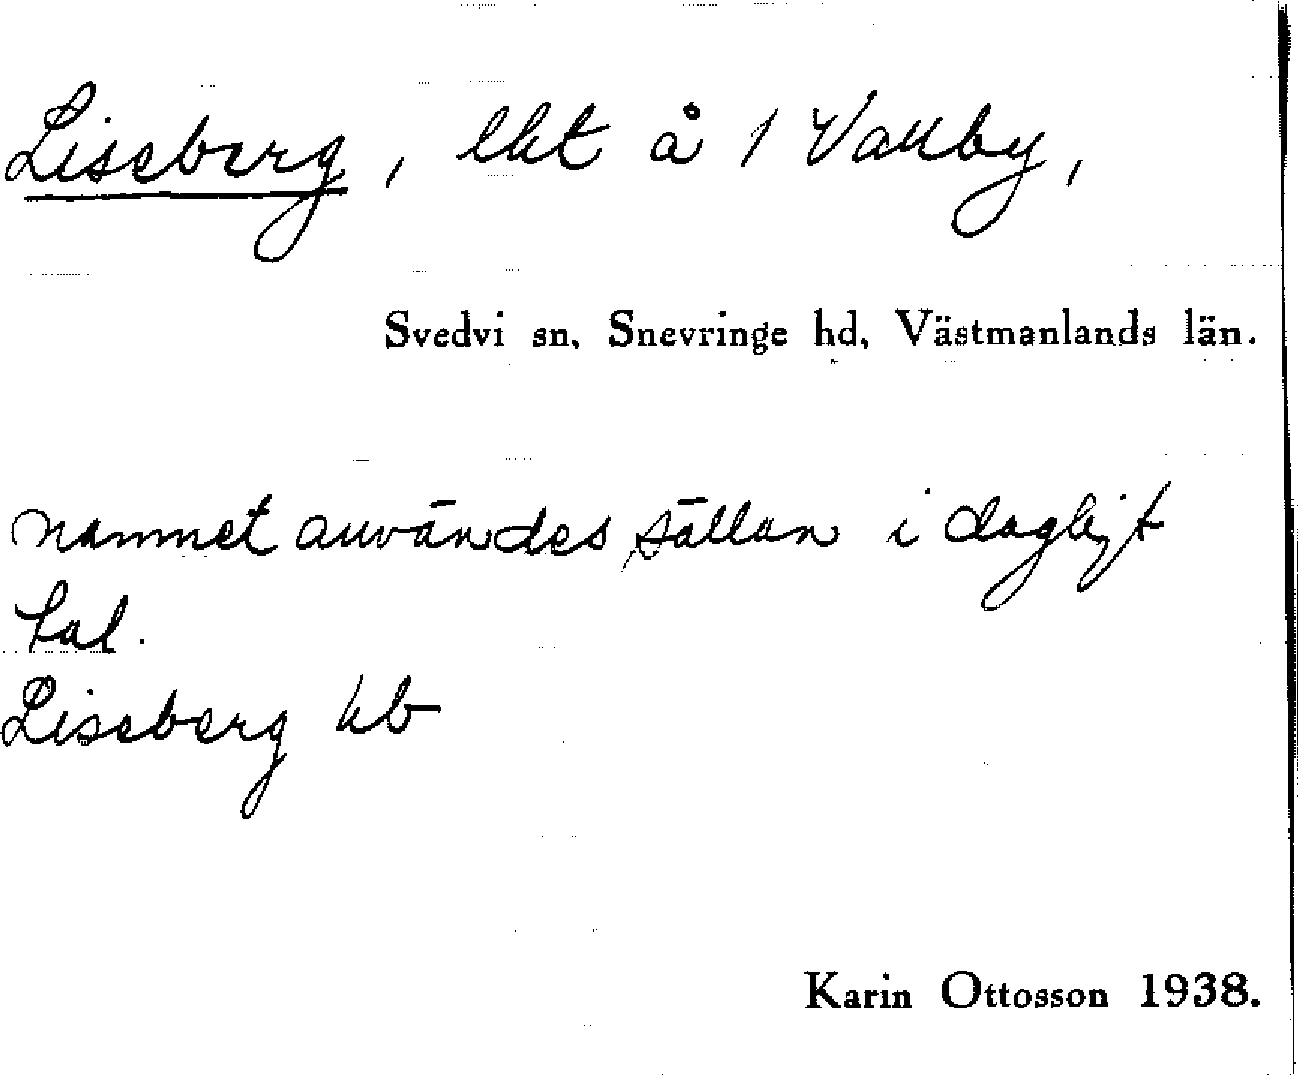 Liseberg, lht å 1 Vallby,
Svedvi sn, Snevringe hd, Västmanlands län.
namnet användes sällan i dagligt
tal.
Liseberg kb
Karin Ottosson 1938.